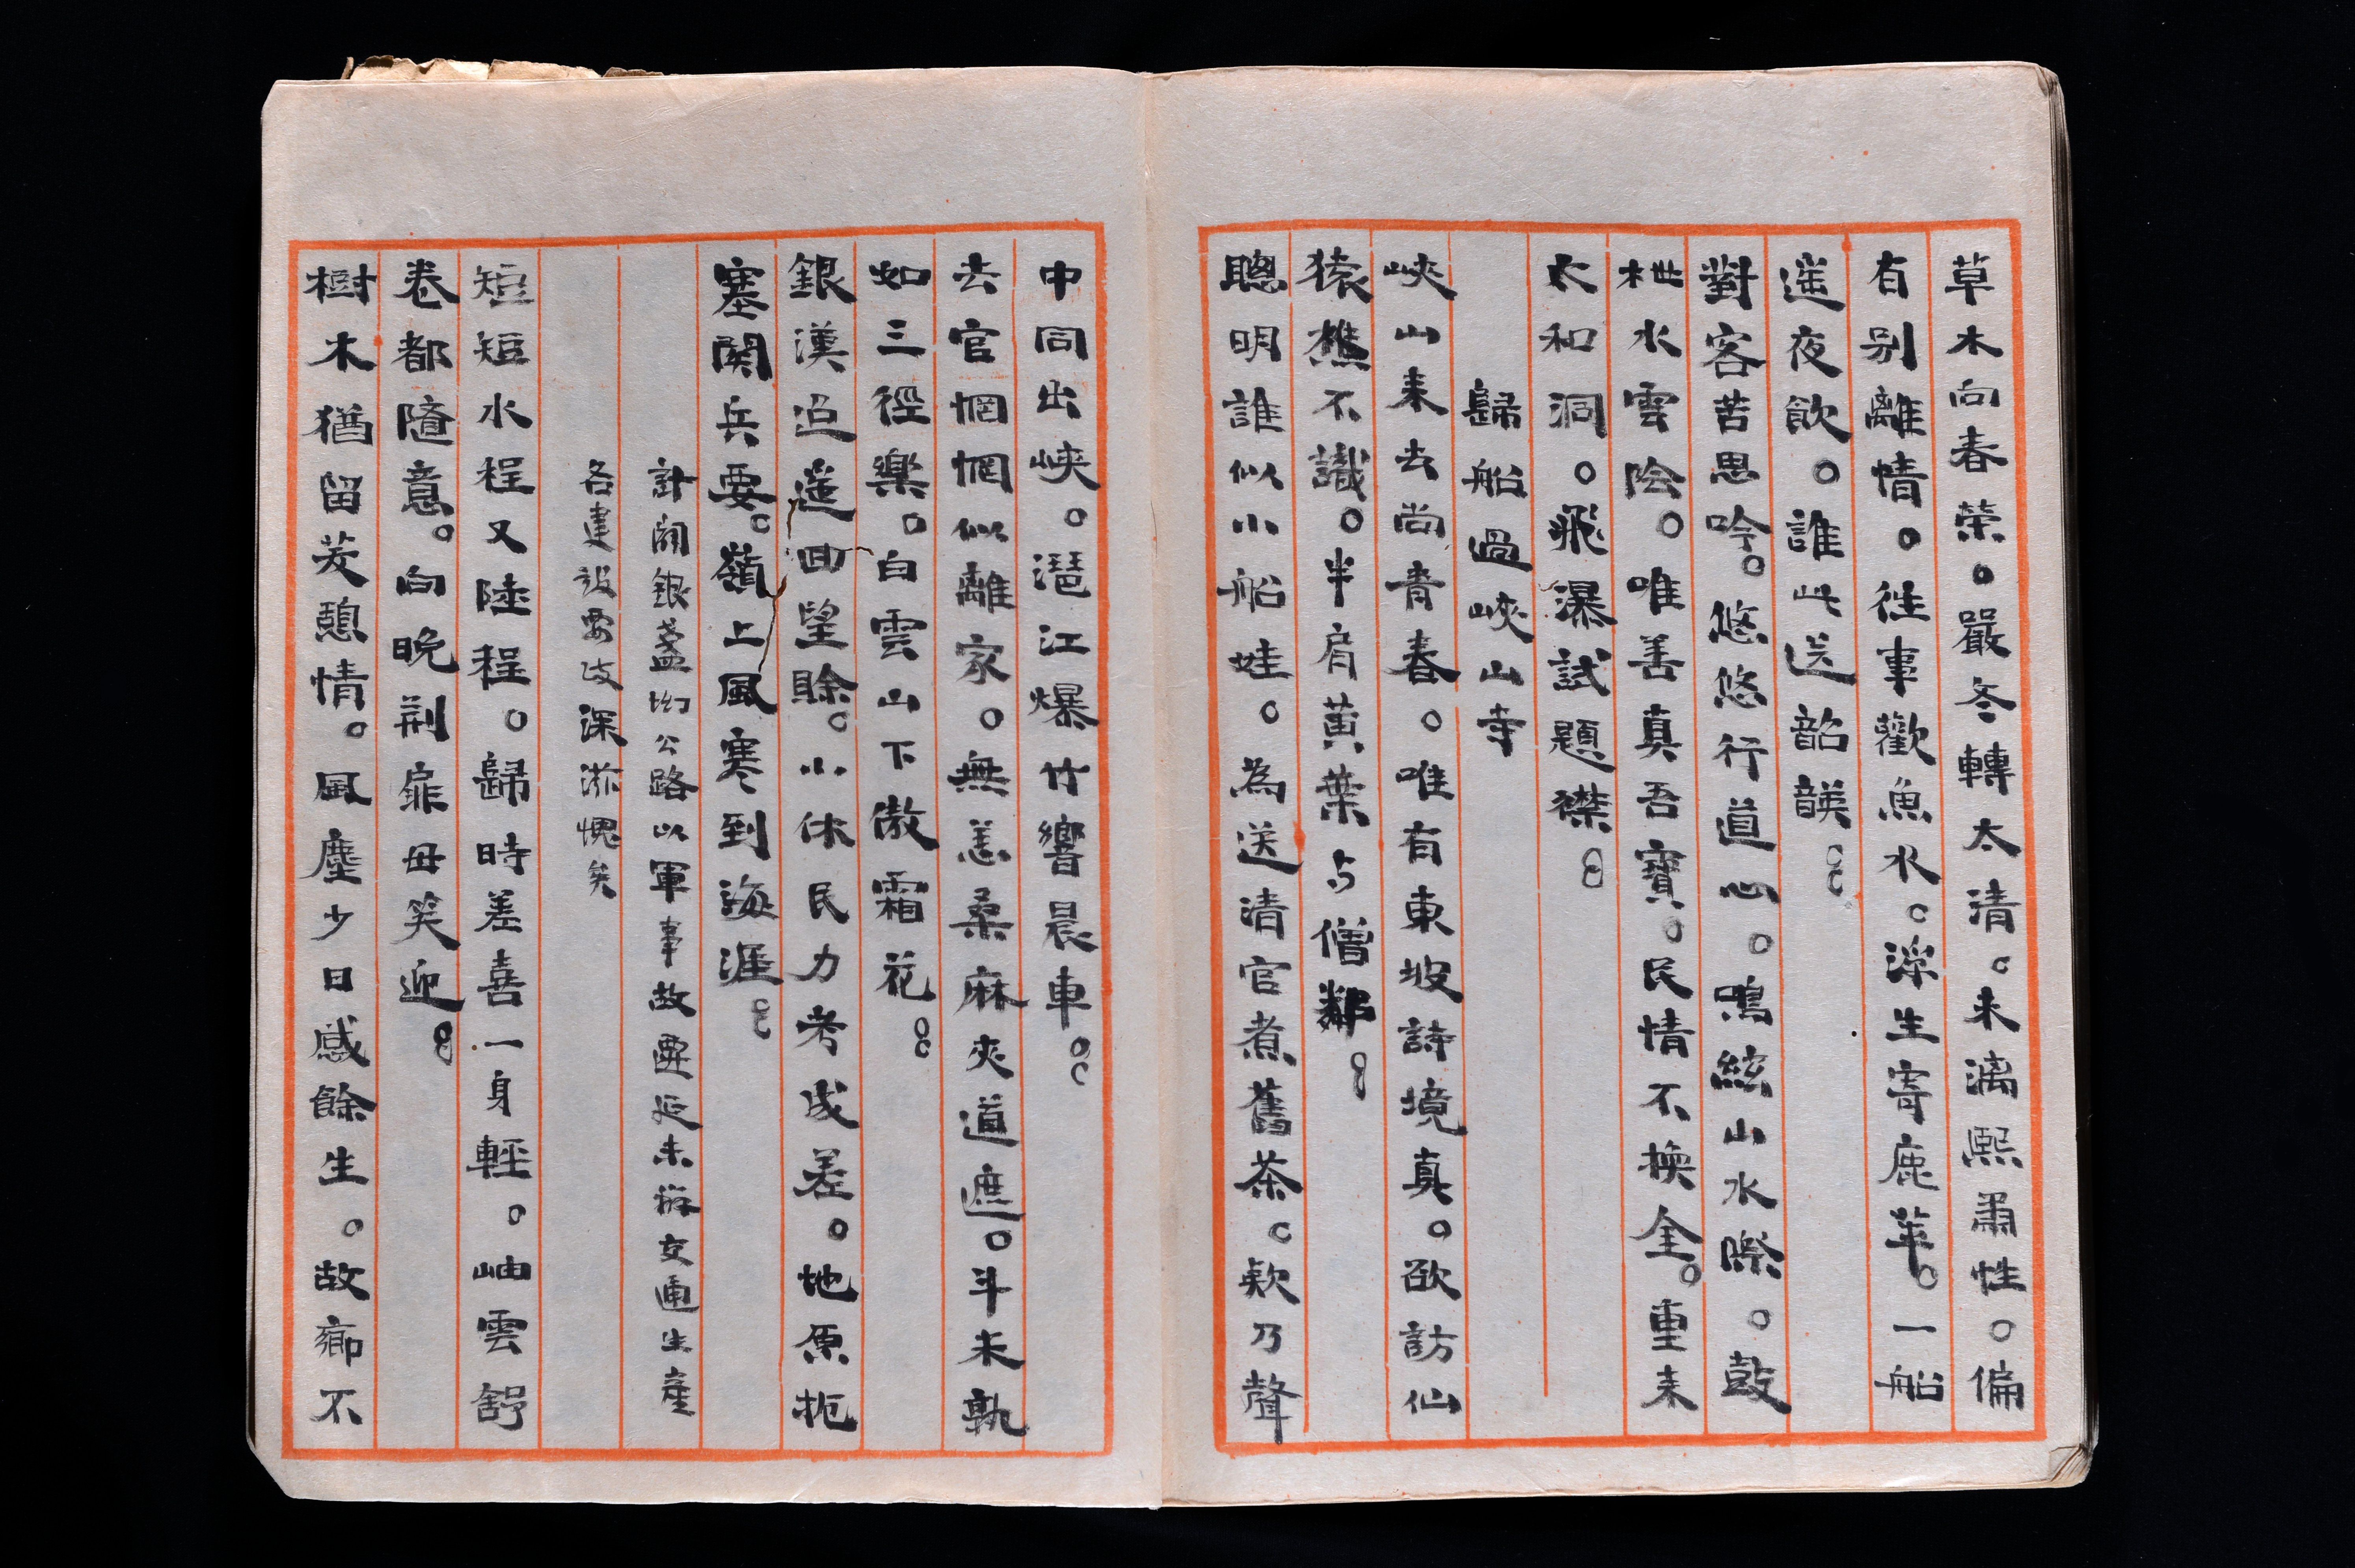 草木向春榮。嚴冬轉太清。未漓熙肅性。偏
有别離情。往事歡魚水。深生寄鹿苹。一船
遥夜飲。誰此送韶韺。
對客苦思吟。悠悠行道心。鳴絃山水際。鼓
枻水雲陰。唯善真吾寶。民情不换金。重来
太和洞。飛瀑試題襟。
歸船過峽山寺
峽山来去尚青春。唯有東坡詩境真。欲訪仙
猿樵不識。半肩黄葉与僧鄰。
聰明誰似小船娃。為送清官煮舊茶。欸乃聲
中同出峽。滘江爆竹響晨車。
去官惘惘似離家。無恙桑麻夾道遮。斗米孰
如三徑樂。白雲山下傲霜花。
銀漢迢遥回望賖。小休民力考成差。地原扼
塞関兵要。嶺上風寒到海涯。
計闢銀盞坳公路以軍事故遷延未辦交通生產
各建設要政深滋愧矣
短短水程又陸程。歸時差喜一身輕。岫雲舒
卷都隨意。向晚荆扉母笑迎。
樹木猶留茇憩情。風塵少日感餘生。故鄉不